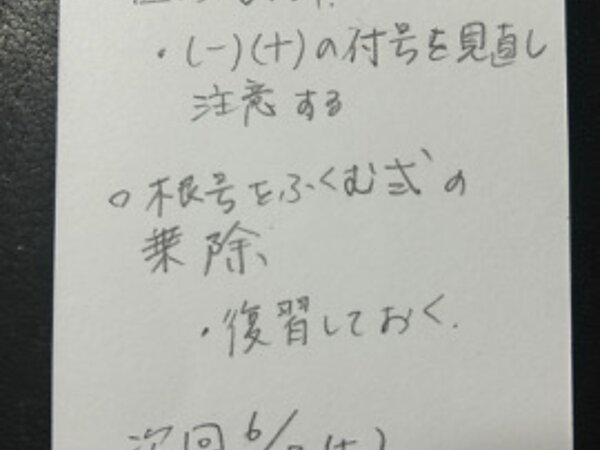 ・(-)(+)の付号を見直し
注意する
○根号をふくむ式の
乗除
・復習しておく.
次回 6/